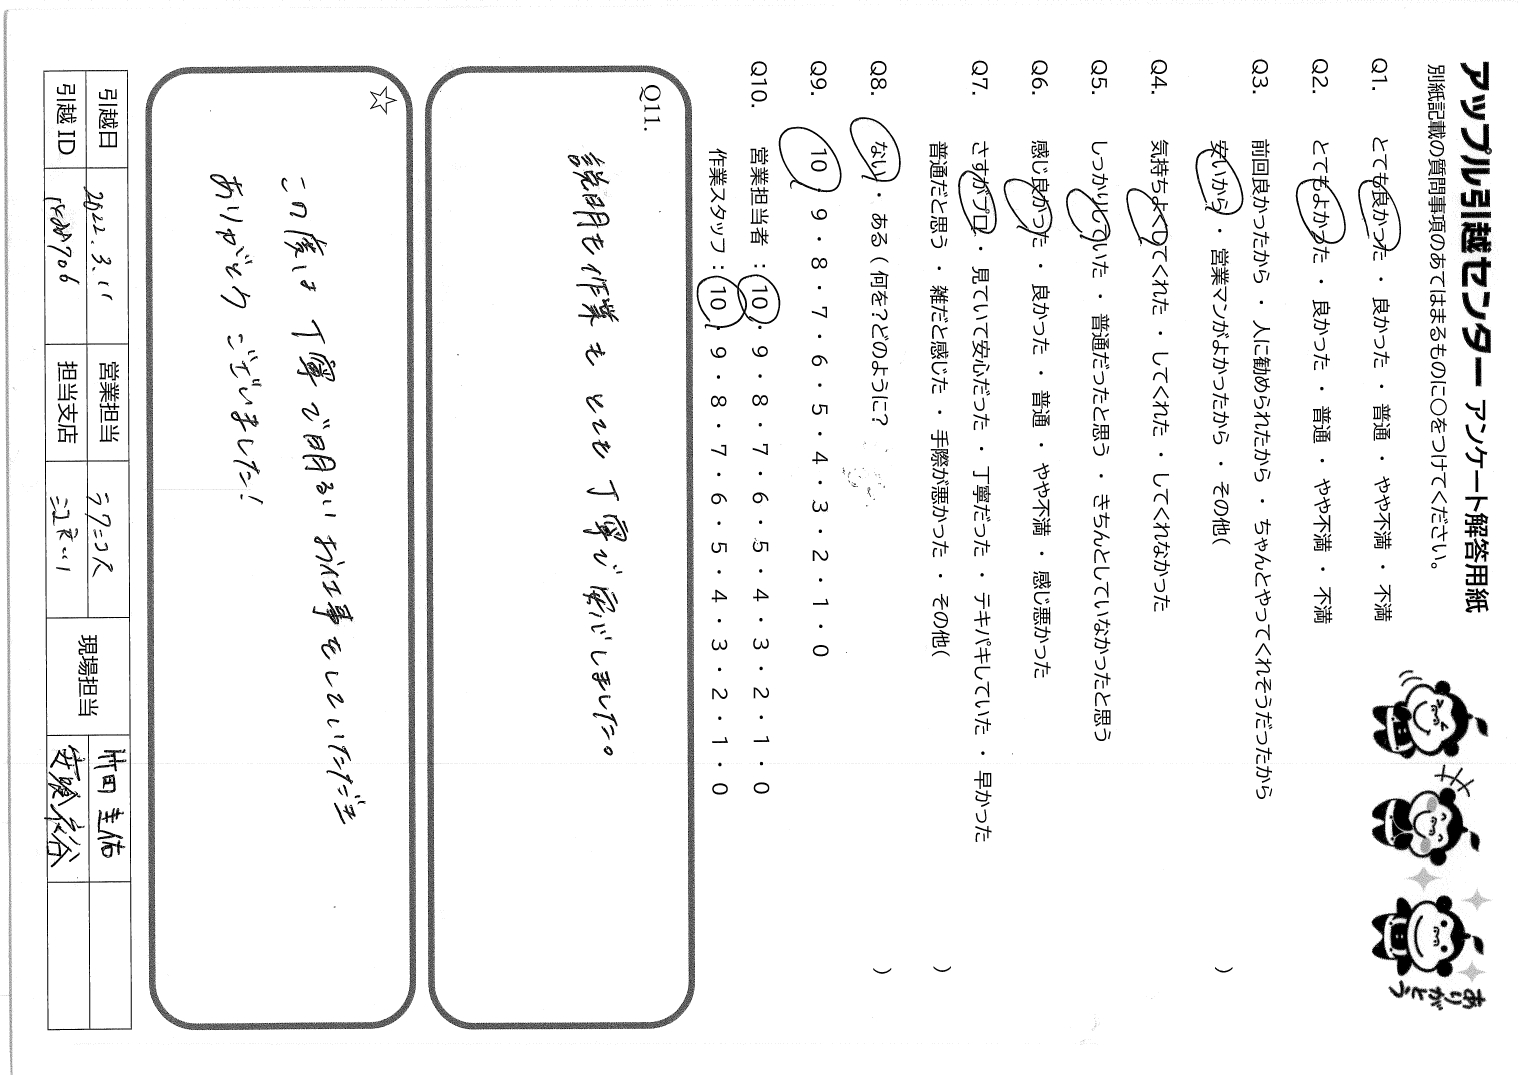 アップル引越センター アンケート解答用紙
別紙記載の質問事項のあてはまるものに○をつけてください。
ありがとう
Q1. とても良かった ・ 良かった ・ 普通 ・ やや不満 ・ 不満
Q2. とてもよかった ・ 良かった ・ 普通 ・ やや不満 ・ 不満
Q3. 前回良かったから ・ 人に勧められたから ・ ちゃんとやってくれそうだったから
安いから ・ 営業マンがよかったから ・ その他( )
Q4. 気持ちよくしてくれた ・ してくれた ・ してくれなかった
Q5. しっかりしていた ・ 普通だったと思う ・ きちんとしていなかったと思う
Q6. 感じ良かった ・ 良かった ・ 普通 ・ やや不満 ・ 感じ悪かった
Q7. さすがプロ ・ 見ていて安心だった ・ 丁寧だった ・ テキパキしていた ・ 早かった
普通だと思う ・ 雑だと感じた ・ 手際が悪かった ・ その他( )
Q8. ない ・ ある ( 何を?どのように? )
Q9. 10 ・ 9 ・ 8 ・ 7 ・ 6 ・ 5 ・ 4 ・ 3 ・ 2 ・ 1 ・ 0
Q10. 営業担当者 : 10 ・ 9 ・ 8 ・ 7 ・ 6 ・ 5 ・ 4 ・ 3 ・ 2 ・ 1 ・ 0
作業スタッフ : 10 ・ 9 ・ 8 ・ 7 ・ 6 ・ 5 ・ 4 ・ 3 ・ 2 ・ 1 ・ 0
Q11.
説明も作業もとても丁寧で安心しました。
☆
この度は丁寧で明るいお仕事をしていただき
ありがとうございました!
引越日 2022.3.11 営業担当 現場担当 竹田 圭佑
引越ID 担当支店